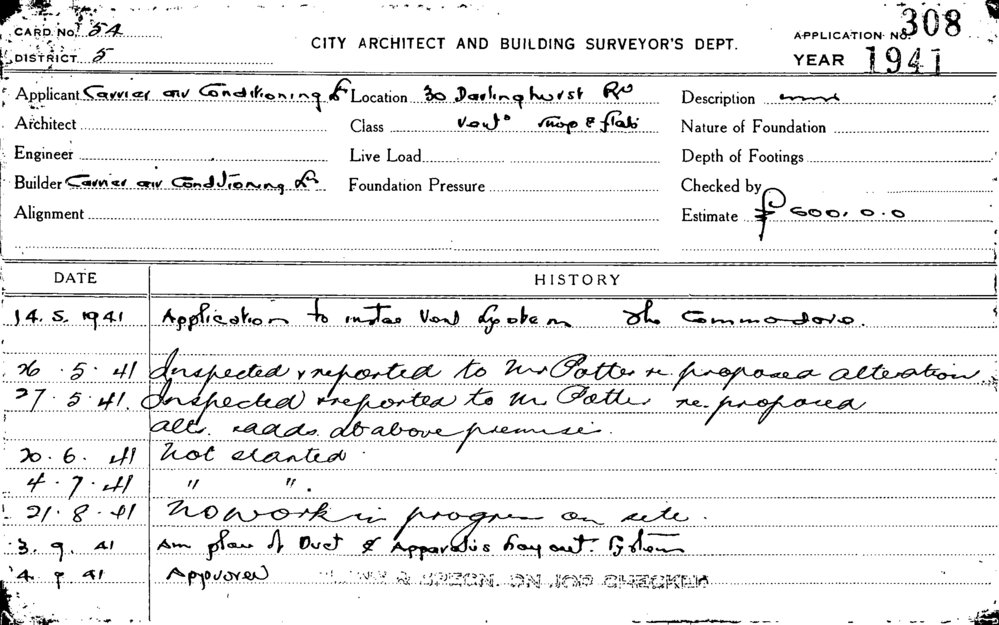 CARD No. 54
DISTRICT 5
CITY ARCHITECT AND BUILDING SURVEYOR'S DEPT.
APPLICATION No. 308
YEAR 1941
Applicant Carrier air Conditioning Ld Location 30 Darlinghurst Rd Description
Architect Class Vent shop & flats Nature of Foundation
Engineer Live Load Depth of Footings
Builder Carrier air Conditioning Ld Foundation Pressure Checked by
Alignment Estimate £ 600.0.0
DATE HISTORY
14.5.1941 Application to instal Vent System The Commodore.
26.5.41 Inspected & reported to Mr Potter re. proposed alteration
27.5.41. Inspected & reported to Mr Potter re. proposed
alts. & adds. at above premises.
20.6.41 Not started
4.7.41 " ".
21.8.41 No work in progress on site.
3.9.41 Am plan of Duct & Apparatus Layout. System
4.9.41 Approved PLANS & SPECN. ON JOB CHECKED